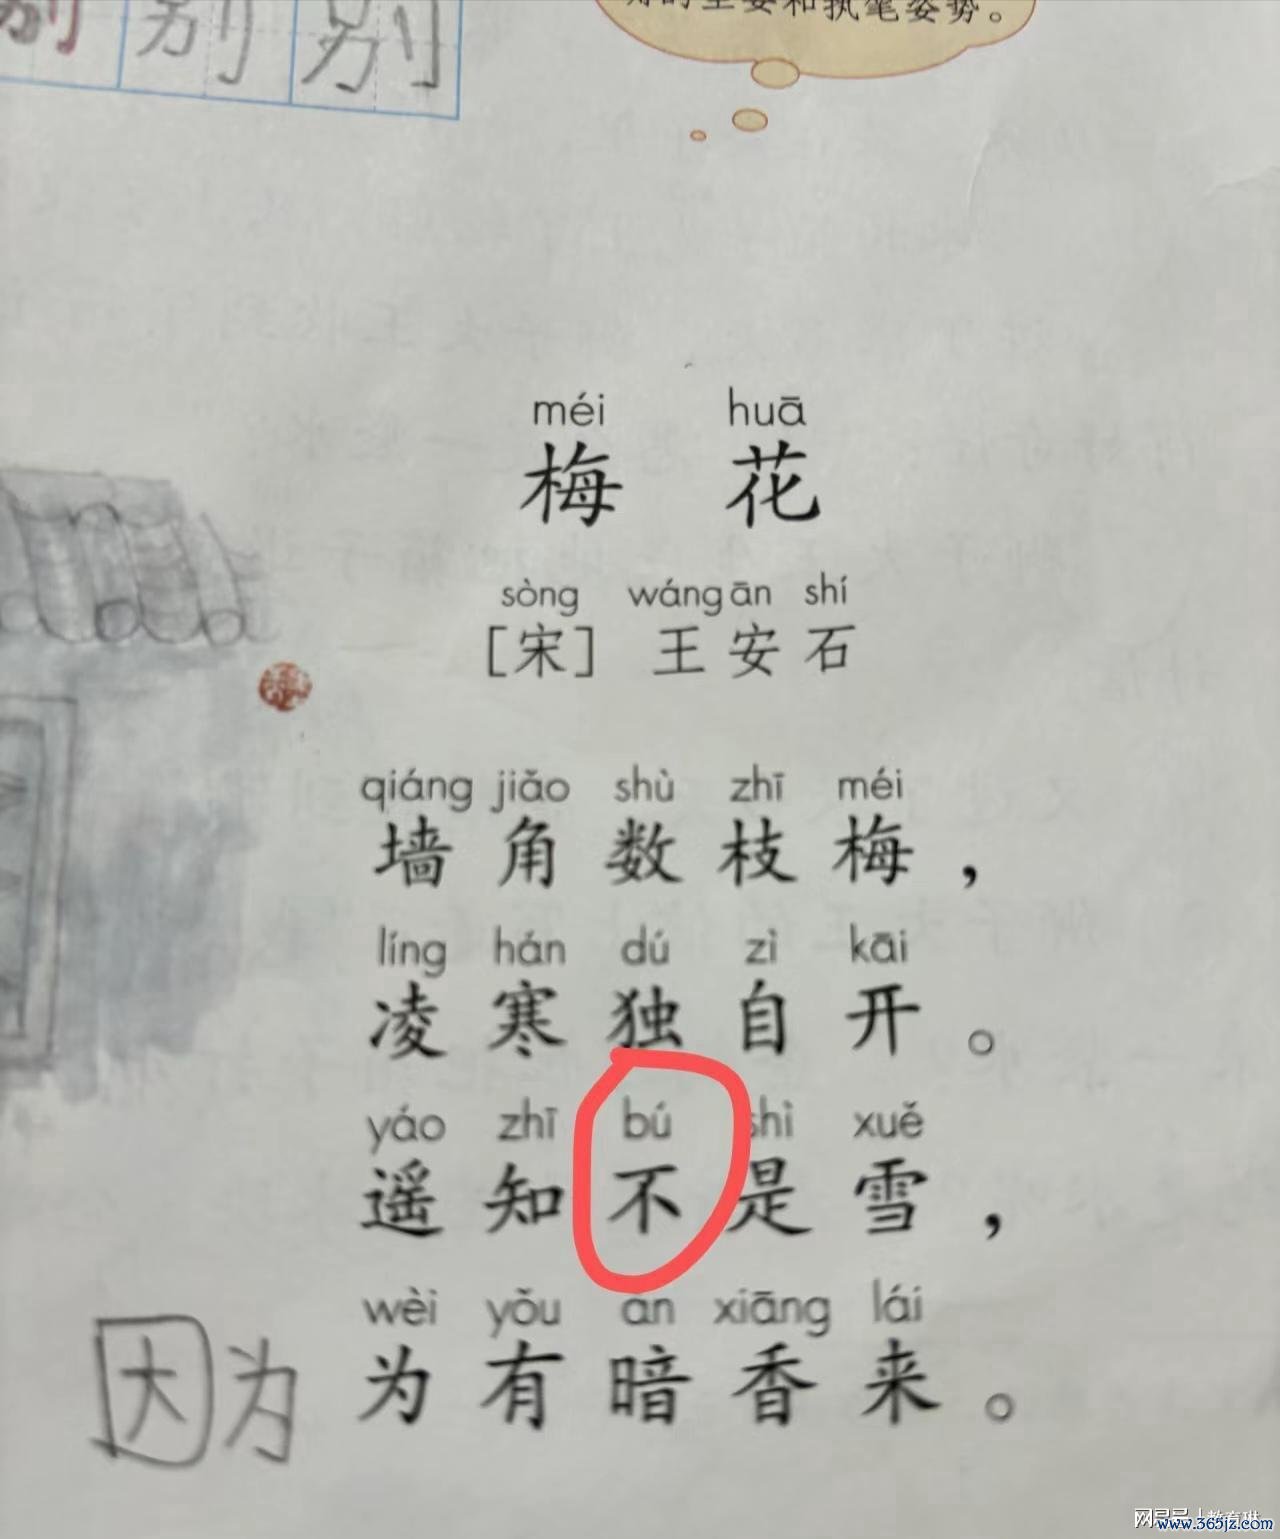 别 别 别
和执笔姿势。
méi huā
梅 花
sòng wáng ān shí
[宋] 王安石
qiáng jiǎo shù zhī méi
墙角数枝梅，
líng hán dú zì kāi
凌寒独自开。
yáo zhī bú shì xuě
遥知不是雪，
wèi yǒu àn xiāng lái
因为 为有暗香来。
网易号
www.365jz.com